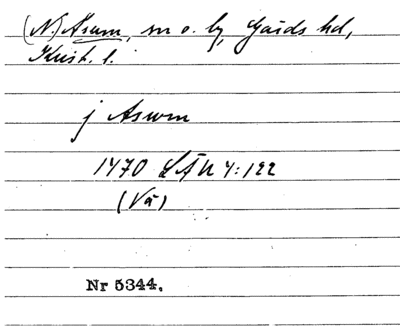 (N.) Åsum, sn o. by, Gärds hd,
Krist. l.
j Aswm
1470 LÄU 4:122
(Vä)
Nr 5344.